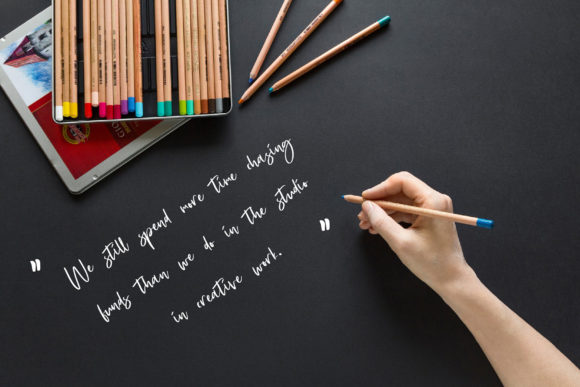 "
We still spend more time chasing
funds than we do in the studio
in creative work.
"